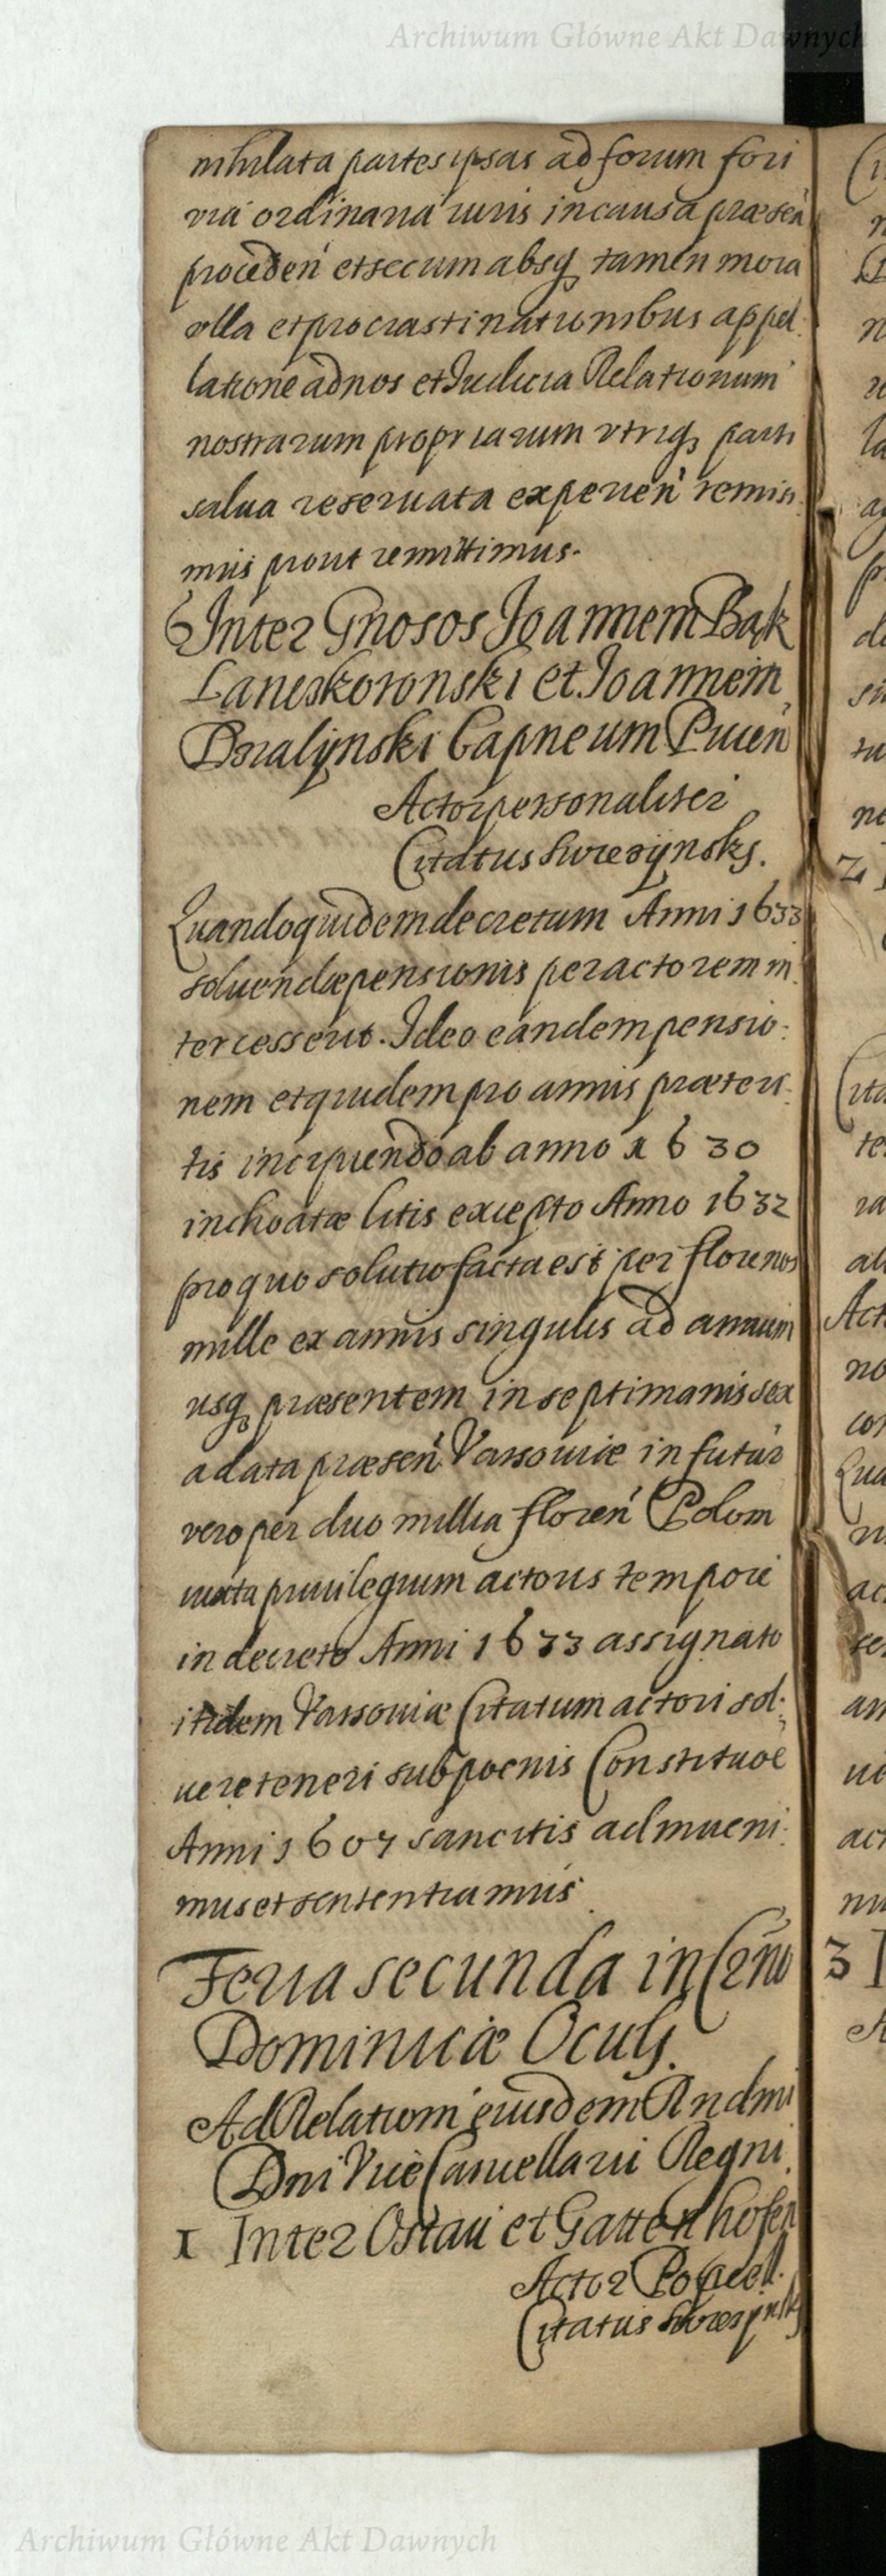 Archiwum Główne Akt Dawnych
nihilata partes ipsas ad forum fori
via ordinaria iuris in causa præsen
proceden et secum absq tamen mora
vlla et procrastinationibus appel:
latione ad nos et Iudicia Relationum
nostrarum propriarum vtriq parti
salua reseruata experien remisi:
mus prout remittimus.
6 Inter Gnosos Joannem Bąk
Lanckoronski et Joannem
Działynski Capneum Pucen
Actor personaliter
Citatus Swiezynsky.
Quandoquidem decretum Anni 1633
soluendæ pensionis per actorem in:
tercesserit. Ideo eandem pensio:
nem et quidem pro annis præteri:
tis incipiendo ab anno 1630
inchoatæ litis excepto Anno 1632
pro quo solutio facta est per florenos
mille ex annis singulis ad annum
usq præsentem in septimanis sex
a data præsen Varsouiæ in futur
vero per duo millia floren Polon
iuxta priuilegium actoris tempore
in decreto Anni 1633 assignato
itidem Varsouiæ Citatum actori sol:
uere teneri sub poenis Constituõe
Anni 1607 sancitis adinueni:
mus et sententiamus
Feria secunda in Crño
Dominicæ Oculi.
Ad Relationem eiusdem Rndmi
Dni Vice Cancellarii Regni.
1 Inter Ostau et Gattenhofen
Actor
Citatus
Archiwum Główne Akt Dawnych